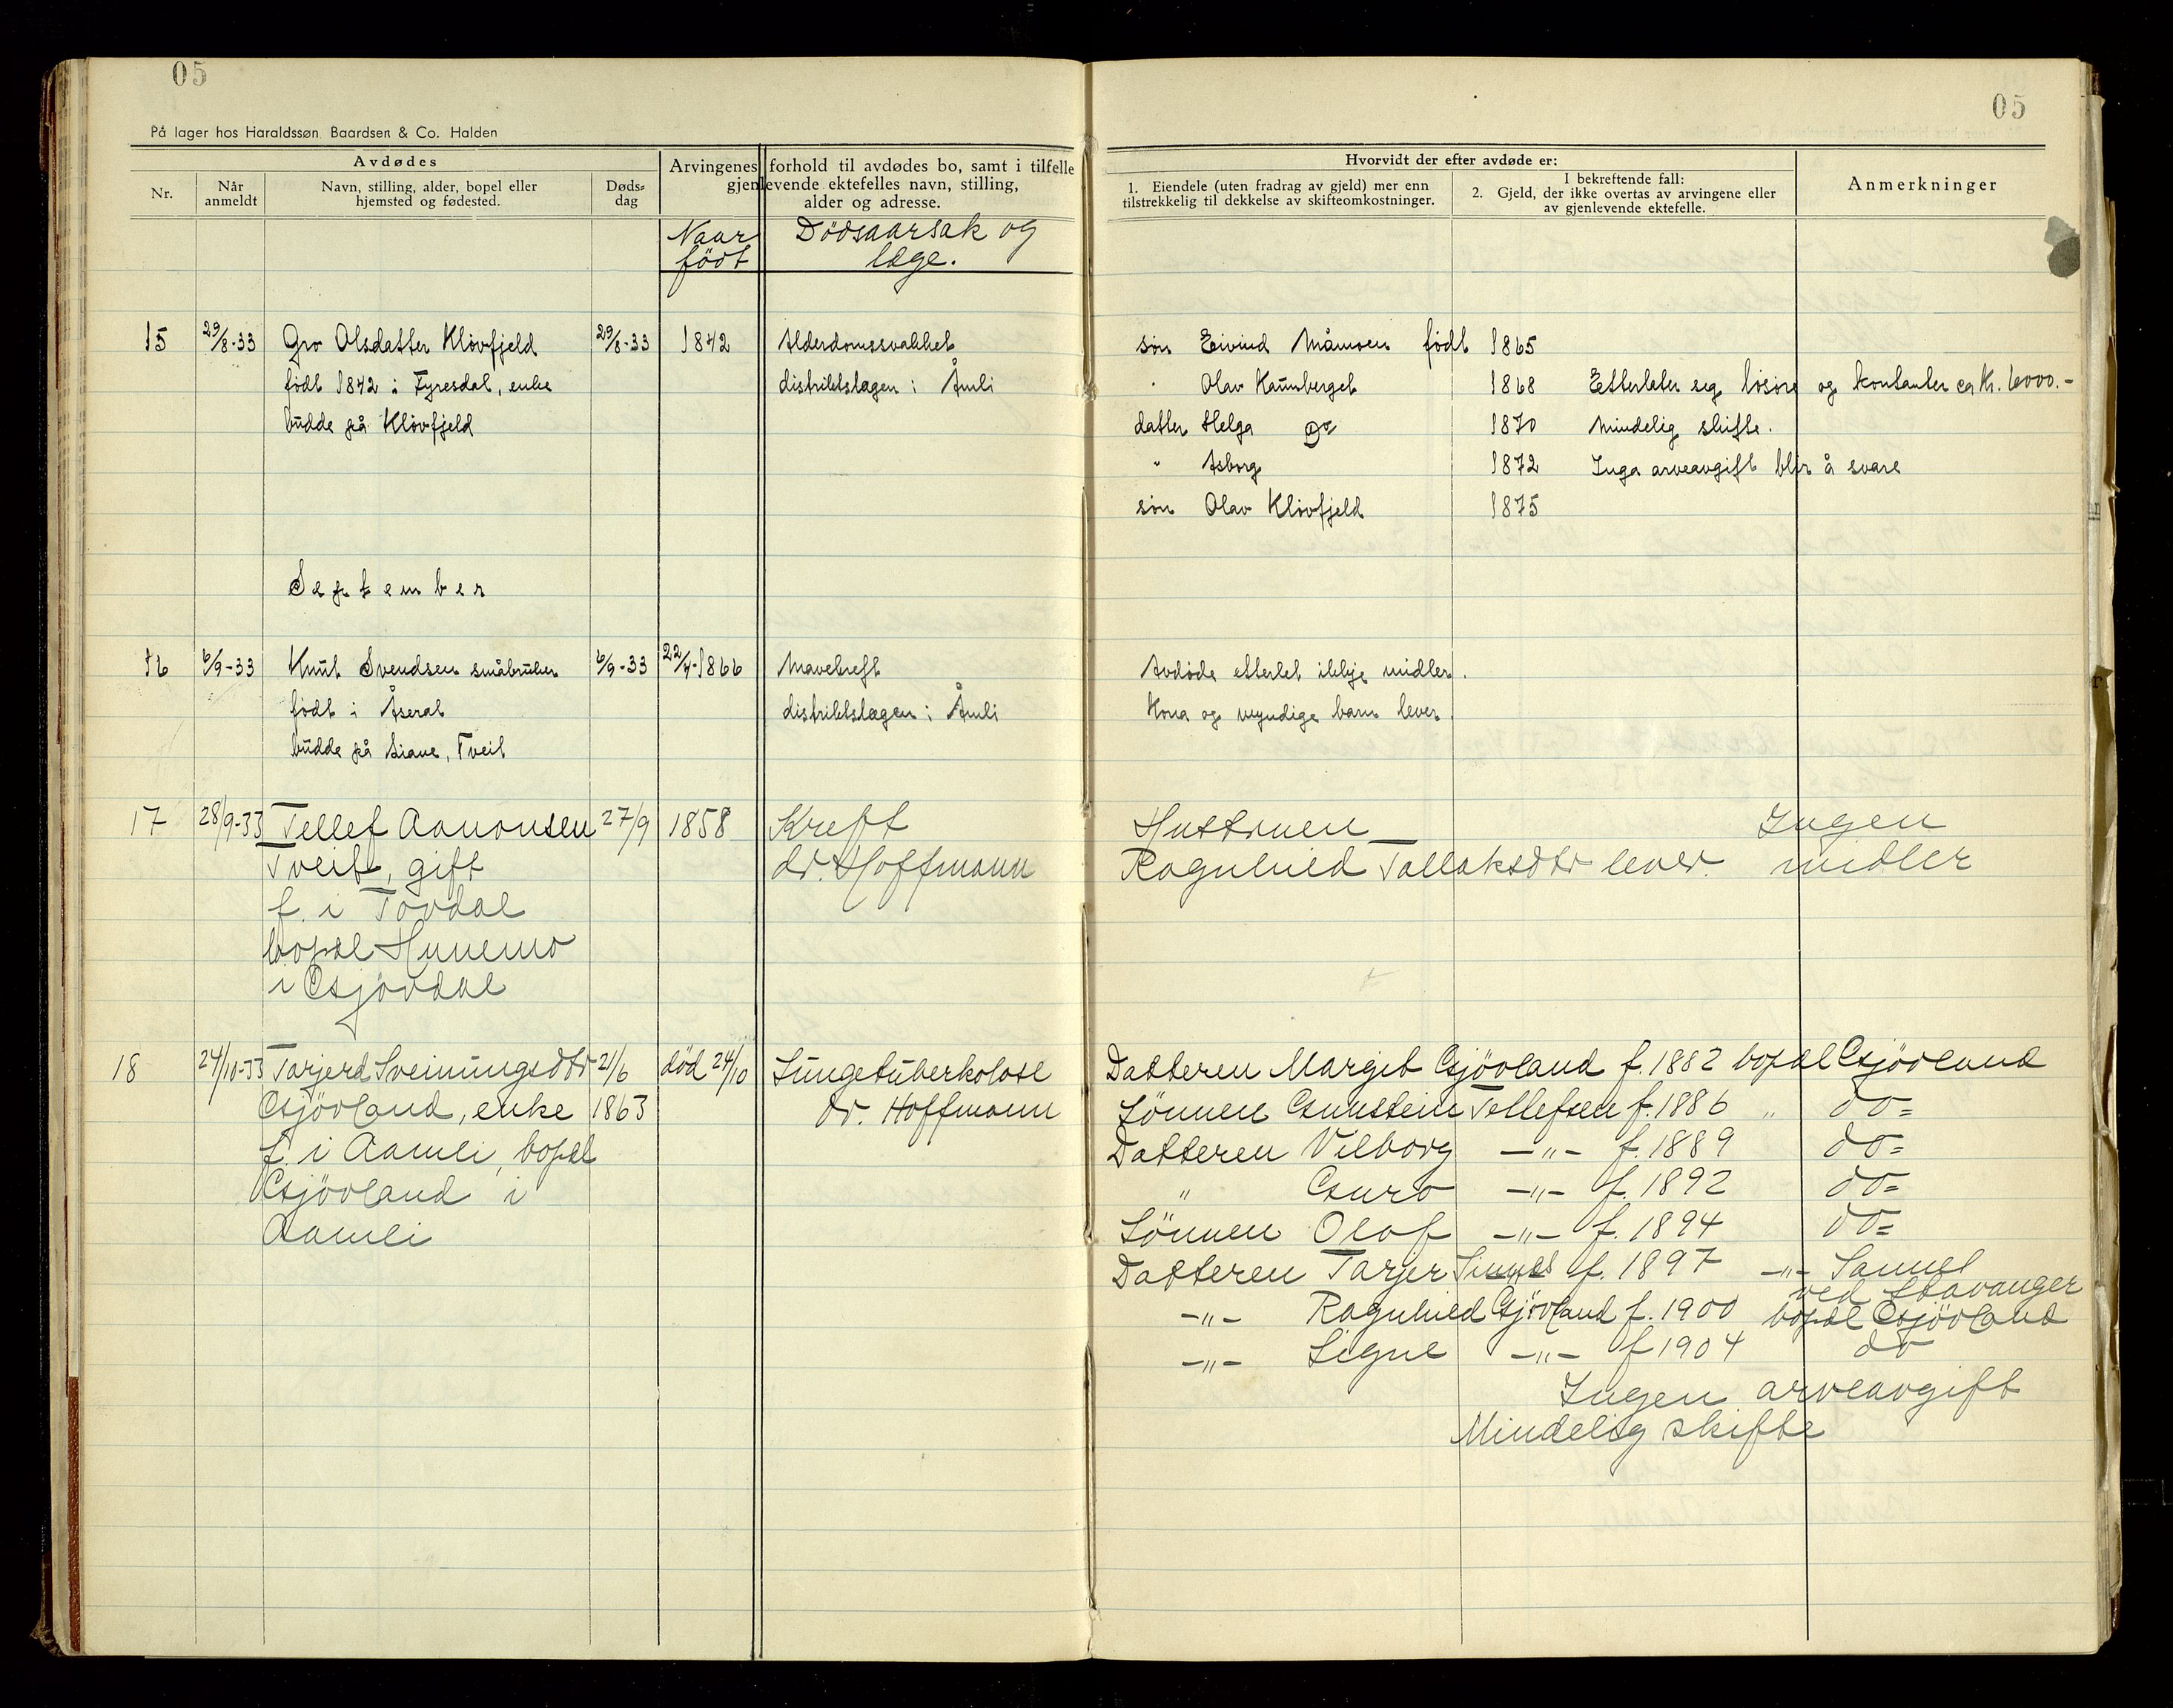 05
05
På lager hos Haraldssøn Baardsen & Co. Halden
Avdødes
Nr.
Når anmeldt
Navn, stilling, alder, bopel eller hjemsted og fødested.
Døds-dag
Arvingenes forhold til avdødes bo, samt i tilfelle
gjenlevende ektefelles navn, stilling,
alder og adresse.
Hvorvidt der efter avdøde er:
1. Eiendele (uten fradrag av gjeld) mer enn
tilstrekkelig til dekkelse av skifteomkostninger.
I bekreftende fall:
2. Gjeld, der ikke overtas av arvingene eller
av gjenlevende ektefelle.
Anmerkninger
Naar født
Dödsaarsak og læge.
15 29/8-33 Gro Olsdatter Kløvfjeld 29/8-33 1842 Alderdomssvakhet
født 1842 i Fyresdal, enke distriktslægen i Åmli
budde på Kløvfjeld
søn Eivind Måmoen født 1865
" Olav Haumberget 1868 Etterleter seg løsøre og kontanter ca kr. 6000.-
datter Helga 1870 Mindelig skifte.
" Asborg 1872 Inga arveavgift blir å svare
søn Olav Kløvfjeld 1875
September
16 6/9-33 Knut Svendsen småbruker 6/9-33 22/4-1866 Mavekreft
født i Åseral distriktslægen i Åmli
budde på Liane, Tveit
Avdøde etterlet ikkje midler.
Kona og myndige barn lever.
17 28/9-33 Tellef Aanonsen 27/9 1858 Kreft
Tveit, gift dr. Hoffmann
f. i Tovdal
bopæl Hunemo
i Gjövdal
Hustruen Ingen
Ragnhild Tallaksdtr lever. midler
18 24/10-33 Tarjerd Sveinungsdtr 21/6 død 24/10 Lungetuberkolose
Gjövland, enke 1863 dr. Hoffmann
f. i Aamli, bopæl
Gjövland i
Aamli
Datteren Margit Gjövland f. 1882 bopæl Gjövland
Sönnen Gunstein Tellefsen f. 1886 " do=
Datteren Vilborg -"- f. 1889 do=
" Guro -"- f. 1892 do=
Sönnen Olaf -"- f. 1894 do=
Datteren Tarjer Sinnes f. 1897 -"- Sannes
ved Stavanger
-"- Ragnhild Gjövland f. 1900 bopæl Gjövland
-"- Signe -"- f 1904 do
Ingen arveavgift
Mindelig skifte